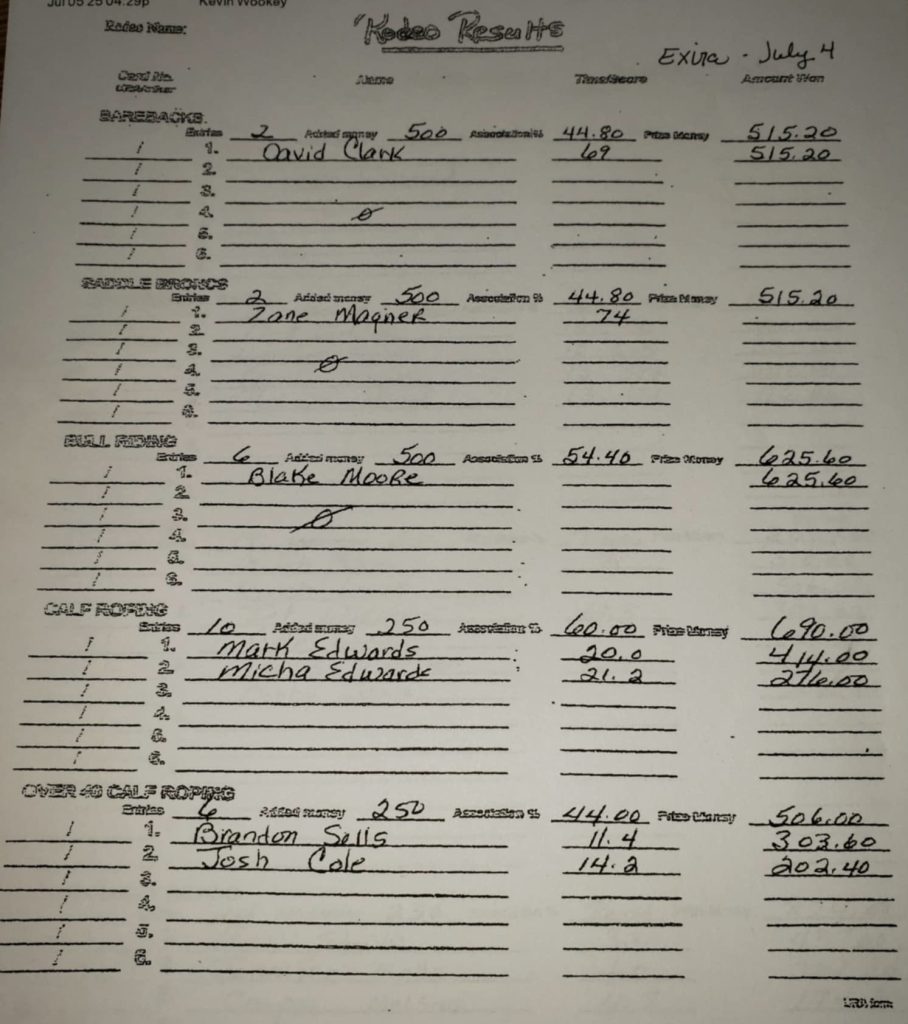 Jul 05 25 04:29p Kevin Wookey
Rodeo Name: "Rodeo Results
Exira - July 4
Card No. Name Time/Score Amount Won
BAREBACKS
Entries 2 Added money 500 Association % 44.80 Prize Money 515.20
/ 1. David Clark 69 515.20
/ 2.
/ 3.
/ 4. ø
/ 5.
/ 6.
SADDLE BRONCS
Entries 2 Added money 500 Association % 44.80 Prize Money 515.20
/ 1. Zane Magner 74
/ 2.
/ 3.
/ 4. ø
/ 5.
/ 6.
BULL RIDING
Entries 6 Added money 500 Association % 54.40 Prize Money 625.60
/ 1. Blake Moore 625.60
/ 2.
/ 3. ø
/ 4.
/ 5.
/ 6.
CALF ROPING
Entries 10 Added money 250 Association % 60.00 Prize Money 690.00
/ 1. Mark Edwards 20.0 414.00
/ 2. Micha Edwards 21.2 276.00
/ 3.
/ 4.
/ 5.
/ 6.
OVER 40 CALF ROPING
Entries 6 Added money 250 Association % 44.00 Prize Money 506.00
/ 1. Brandon Sells 11.4 303.60
/ 2. Josh Cole 14.2 202.40
/ 3.
/ 4.
/ 5.
/ 6.
URA form